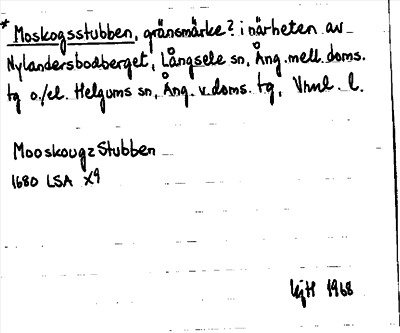 * Moskogsstubben, gränsmärke? i närheten av
Nylandersbodberget, Långsele sn, Ång. mell. doms.
tg o./el. Helgums sn, Ång. v. doms. tg, Vnml. l.
MooskougzStubben
1680 LSA X9
1968